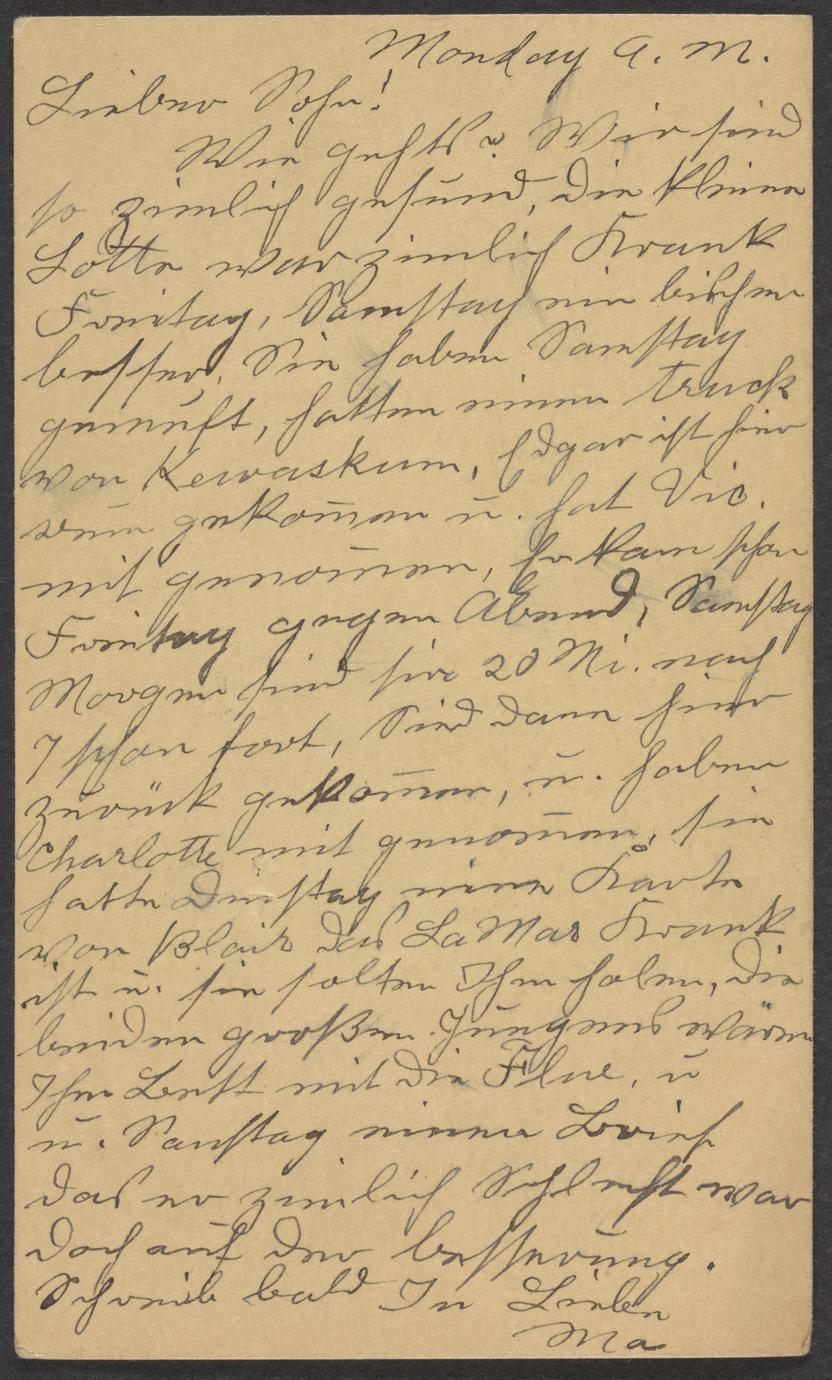 Monday A. M.
Lieber Sohn!
Wie gehts? Wir sind
so zimlich gesund, die kleine
Lotte war zimlich Krank
Freitag, Samstag ein bischen
besser. Sie haben Samstag
gemuft, hatten einen truck
von Kewaskum, Edgar ist hier
rum gekom̄en u. hat Vic.
mit genom̄en, Er kam schon
Freitag gegen Abend, Samstag
Morgen sind sie 20 Mi. nach
7 schon fort, Sind dann hier
zurück gekom̄en, u. haben
Charlotte mit genom̄en, sie
hatte Dinstag eine Karte
von Blair das LaMar Krank
ist u. sie solten Ihn holen, die
beiden großen Jungens wären
Im Bett mit die Flue, u
u. Samstag einen Brief
das er zimlich Schlecht war
doch auf der besserung.
Schreib bald In Liebe
Ma